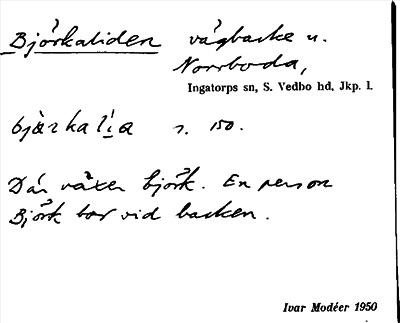 Björkaliden vägbacke u.
Norrboda,
Ingatorps sn, S. Vedbo hd, Jkp. l.
s. 150.
Där växer björk. En person
Björk bor vid backen.
Ivar Modéer 1950